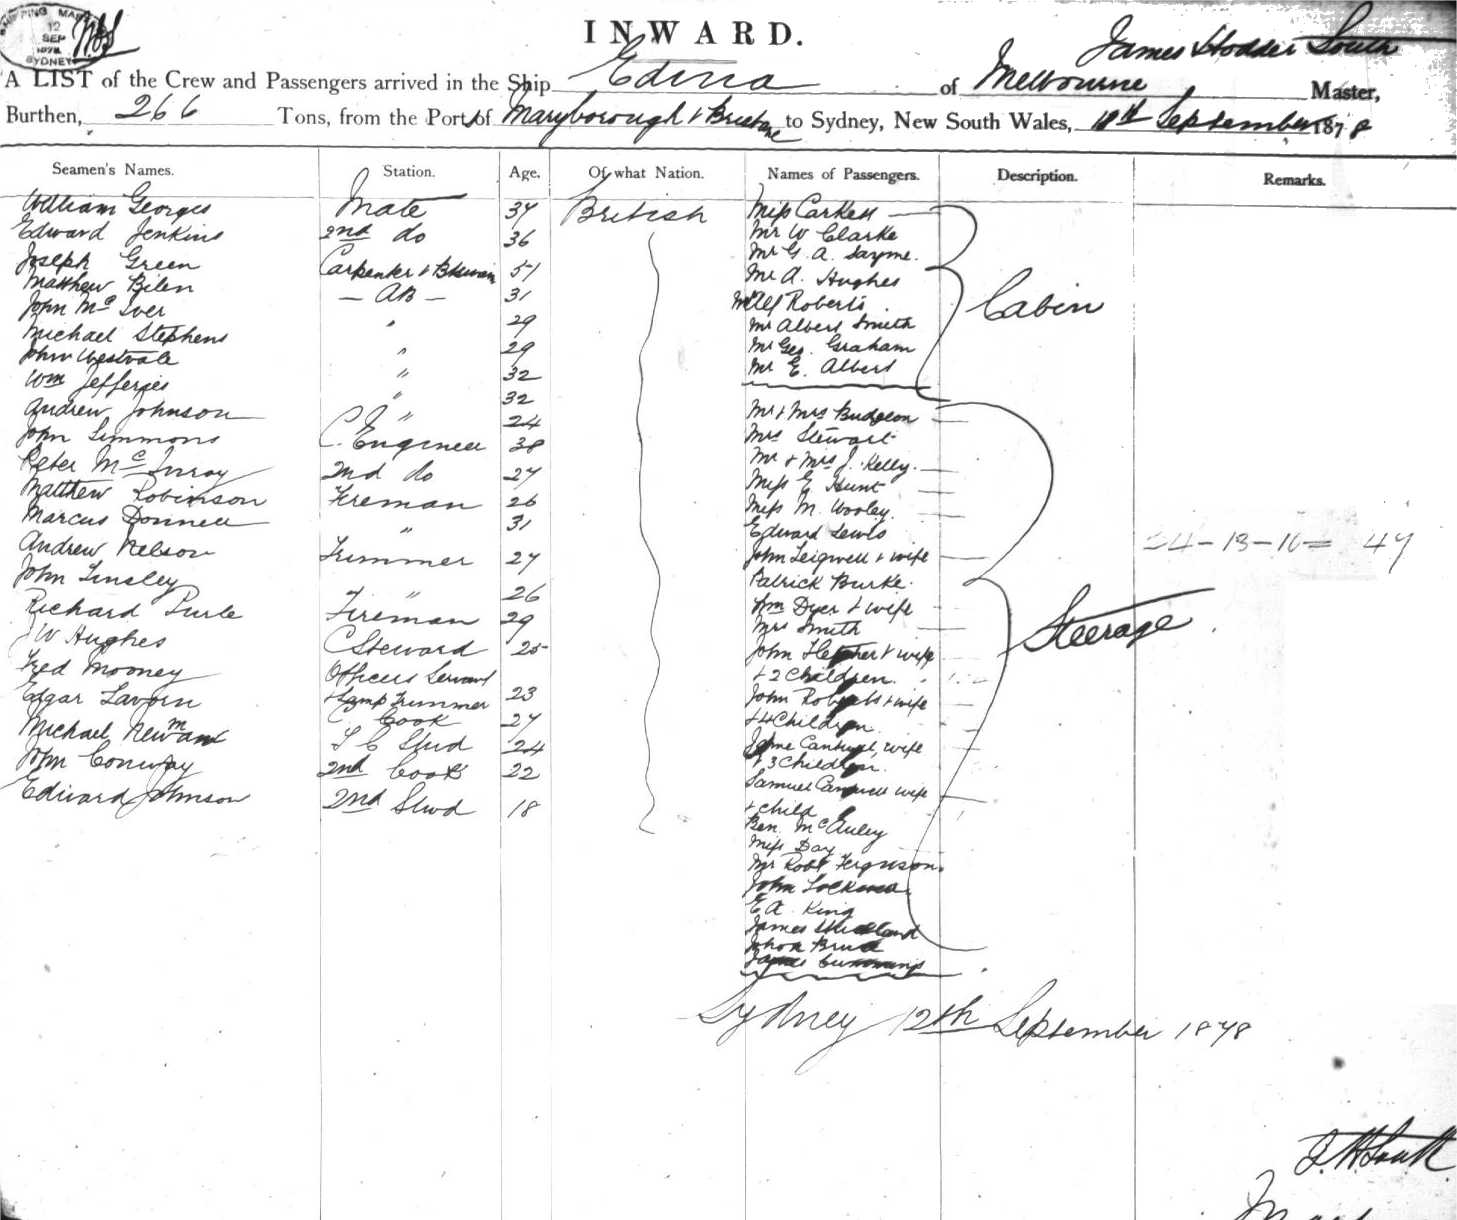 SHIPPING MA
12
SEP
1878
SYDNEY
INWARD.
James Hodder South
A LIST of the Crew and Passengers arrived in the Ship Edina of Melbourne Master,
Burthen, 266 Tons, from the Port of Maryborough & Brisbane to Sydney, New South Wales, 12th September 1878
Seamen's Names. Station. Age. Of what Nation. Names of Passengers. Description. Remarks.
William Georges Mate 37 British Miss Carkett
Edward Jenkins 2nd do 36 Mr W Clarke
Joseph Green Carpenter & 51 Mr G. A. Sayme.
Matthew Bilen - AB - 31 Mr A. Hughes
John McIver " 29 Alf Roberts
Michael Stephens " 29 Mr Albert Smith
John Westvale " 32 Mr Geo. Graham
Wm Jefferies " 32 Mr E. Albert
Cabin
Andrew Johnson " 24 Mr & Mrs Budgeon
John Simmons C. Engineer 38 Mrs Stewart
Peter Mc 2nd do 27 Mr & Mrs J. Kelly.
Matthew Robinson Fireman 26 Miss E Hunt
Marcus Donnell " 31 Miss M. Wooley
Edward Lewis
Andrew Nelson Trimmer 27 John & wife
John Tinsley " 26 Patrick Burke.
Richard Purle Fireman 29 Wm Dyer & wife
Mrs Smith
W Hughes C Steward 25 John Fletcher & wife
Fred Mooney Officers Servant & 2 Children.
& Lamp Trimmer 23 John Roberts & wife
Edgar Lavorn Cook 27 & 4 Children
Michael Newman S C Stwd 24 wife
John Conway 2nd Cook 22 & 3 Children.
Edward Johnson 2nd Stwd 18 Samuel wife
& child
Ben. McAuley
Miss Day
Mr Robt Ferguson.
John
E A. King
James
James Cummings
Steerage
34-13-16= 47
Sydney 12th September 1878
J. H. South